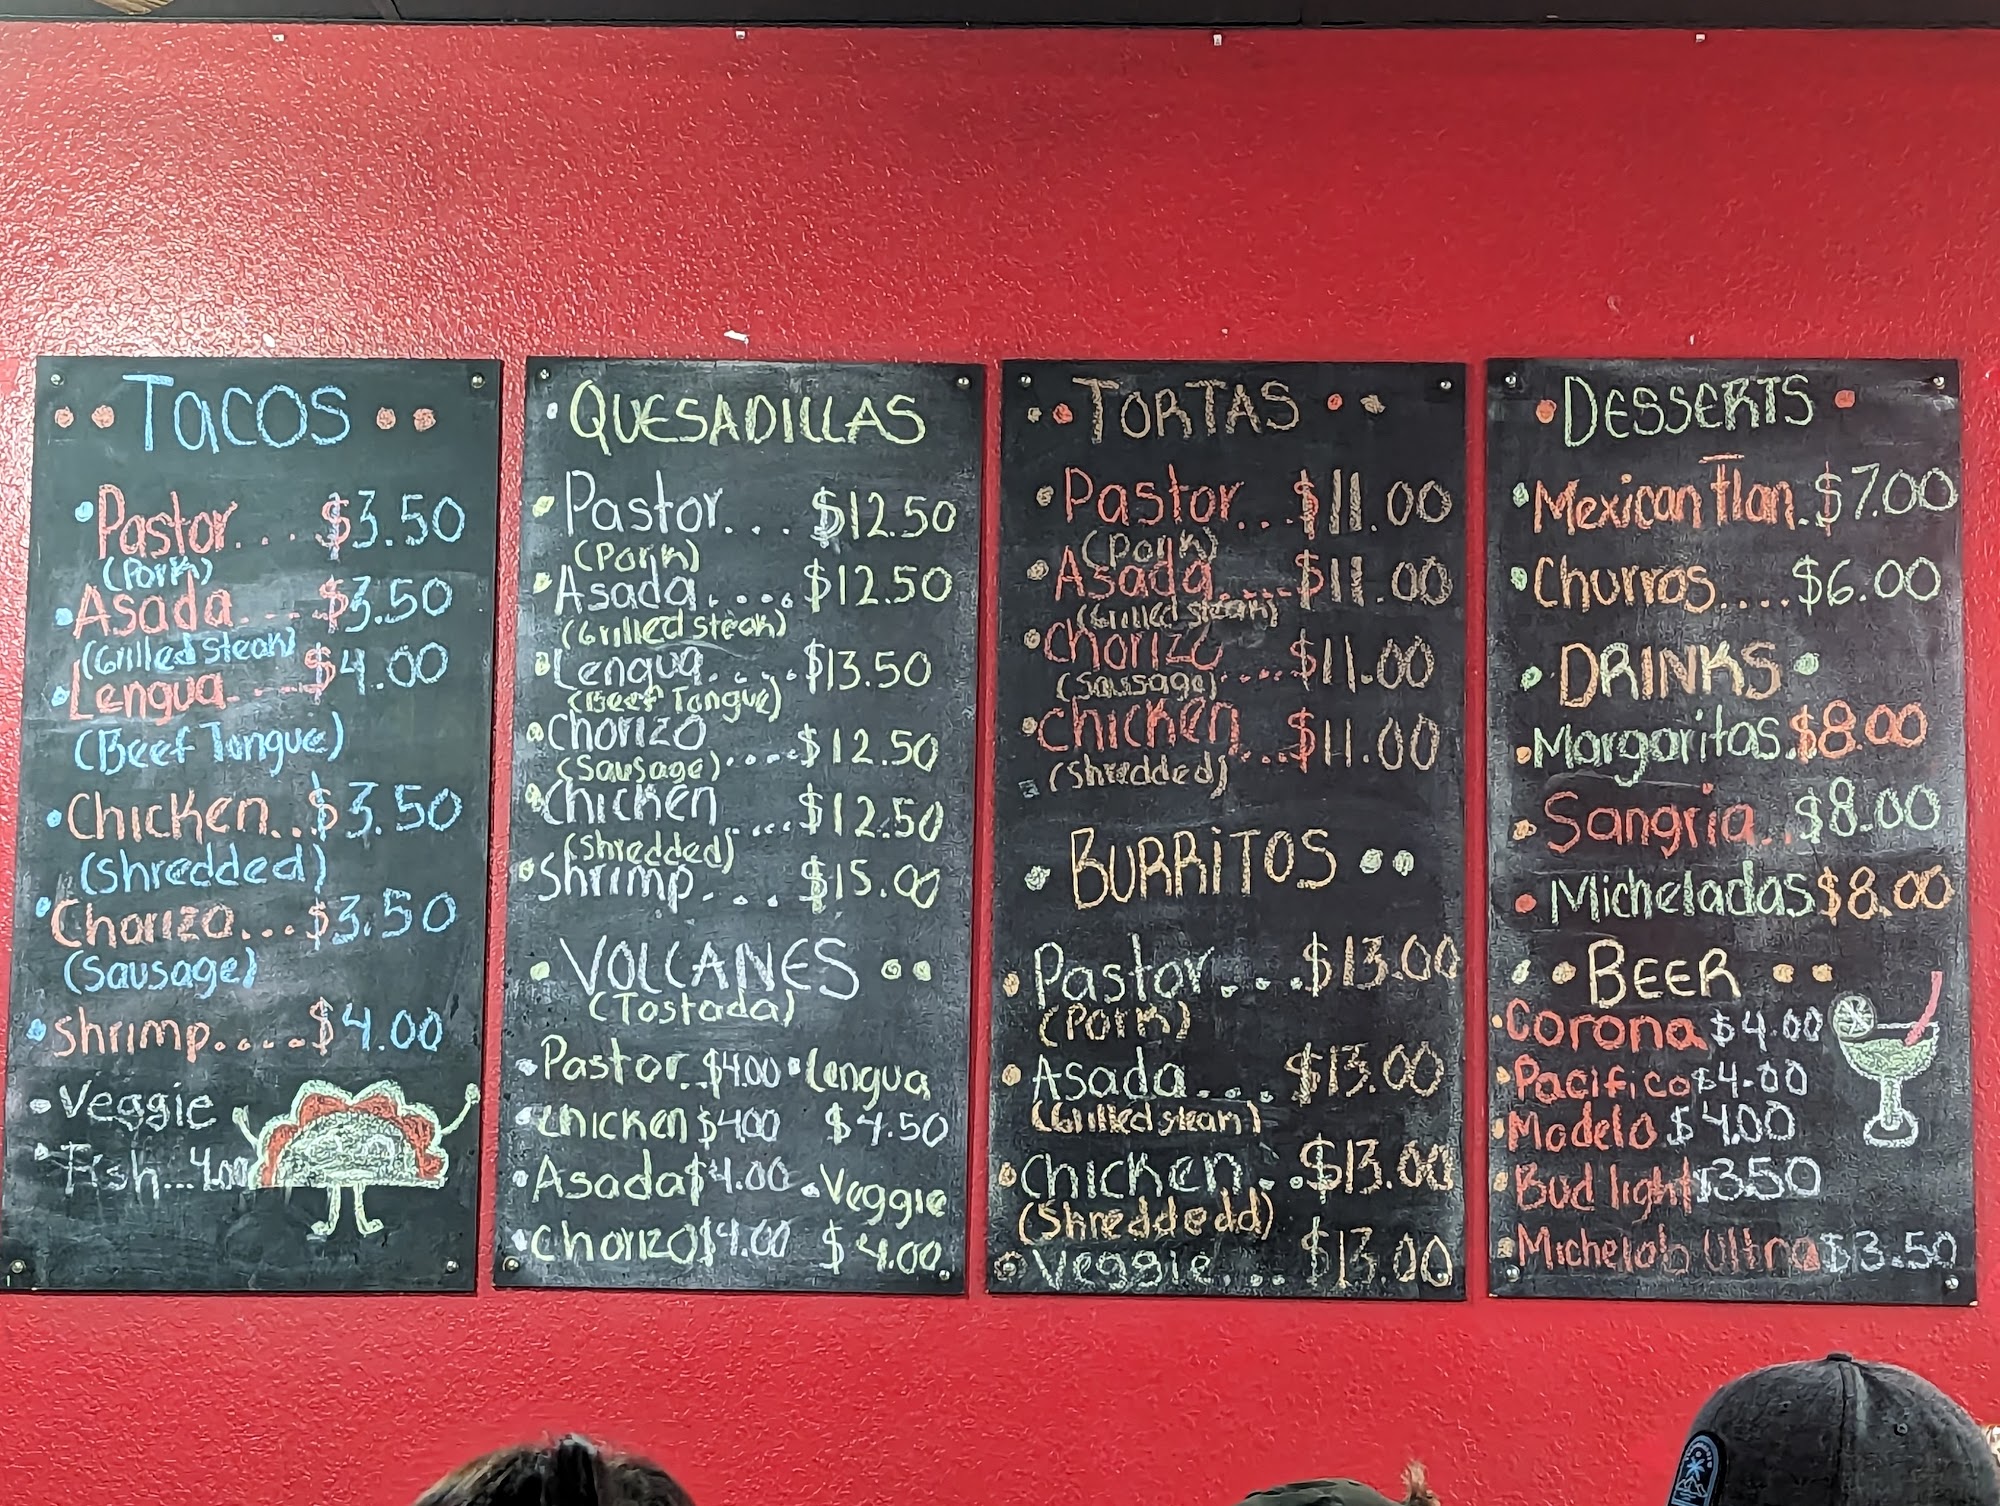 TACOS
Pastor... $3.50
(Pork)
Asada.... $3.50
(Grilled steak)
Lengua.... $4.00
(Beef Tongue)
Chicken... $3.50
(shredded)
Chorizo... $3.50
(Sausage)
shrimp.... $4.00
Veggie
Fish... 4.00
QUESADILLAS
Pastor... $12.50
(Pork)
Asada.... $12.50
(Grilled steak)
Lengua.... $13.50
(Beef Tongue)
Chorizo.... $12.50
(Sausage)
Chicken.... $12.50
(shredded)
Shrimp... $15.00
VOLCANES
(Tostada)
Pastor.. $4.00 Lengua
Chicken $4.00 $4.50
Asada $4.00 Veggie
Chorizo $4.00 $4.00
TORTAS
Pastor... $11.00
(Pork)
Asada.... $11.00
(Grilled steak)
Chorizo.... $11.00
(Sausage)
Chicken... $11.00
(Shredded)
BURRiTOS
Pastor... $13.00
(Pork)
Asada... $13.00
(Grilled steak)
Chicken... $13.00
(Shreddedd)
Veggie... $13.00
DESSERTS
Mexican Flan. $7.00
Churros.... $6.00
DRINKS
Margaritas. $8.00
Sangria.. $8.00
Micheladas $8.00
BEER
Corona $4.00
Pacifico $4.00
Modelo $4.00
Bud light $3.50
Michelob Ultra $3.50